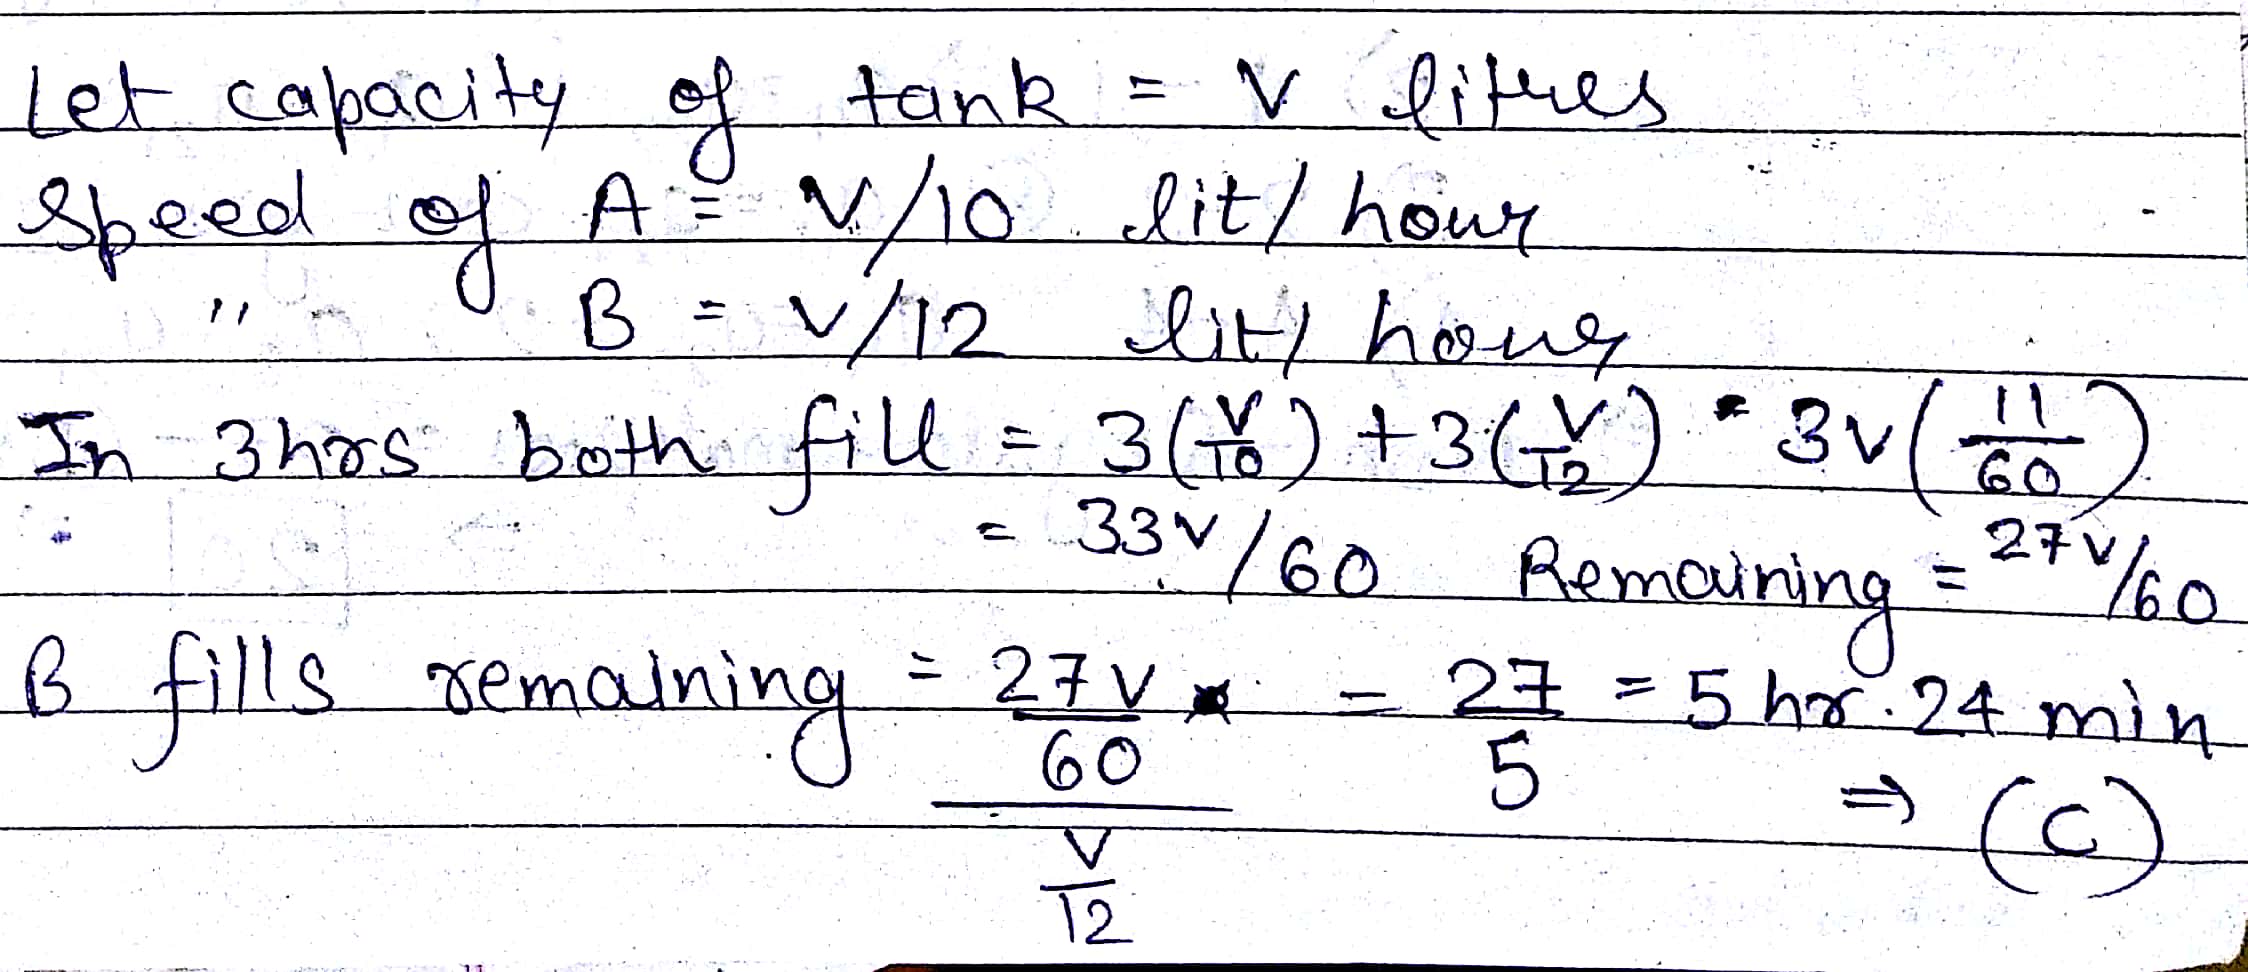 Let capacity of tank = V litres
Speed of A = V/10 lit/hour
" B = V/12 lit/hour
In 3hrs both fill = 3(V/10) + 3(V/12) = 3V(11/60)
= 33V/60 Remaining = 27V/60
B fills remaining = 27V/60 / V/12 = 27/5 = 5 hr. 24 min
⇒ (C)